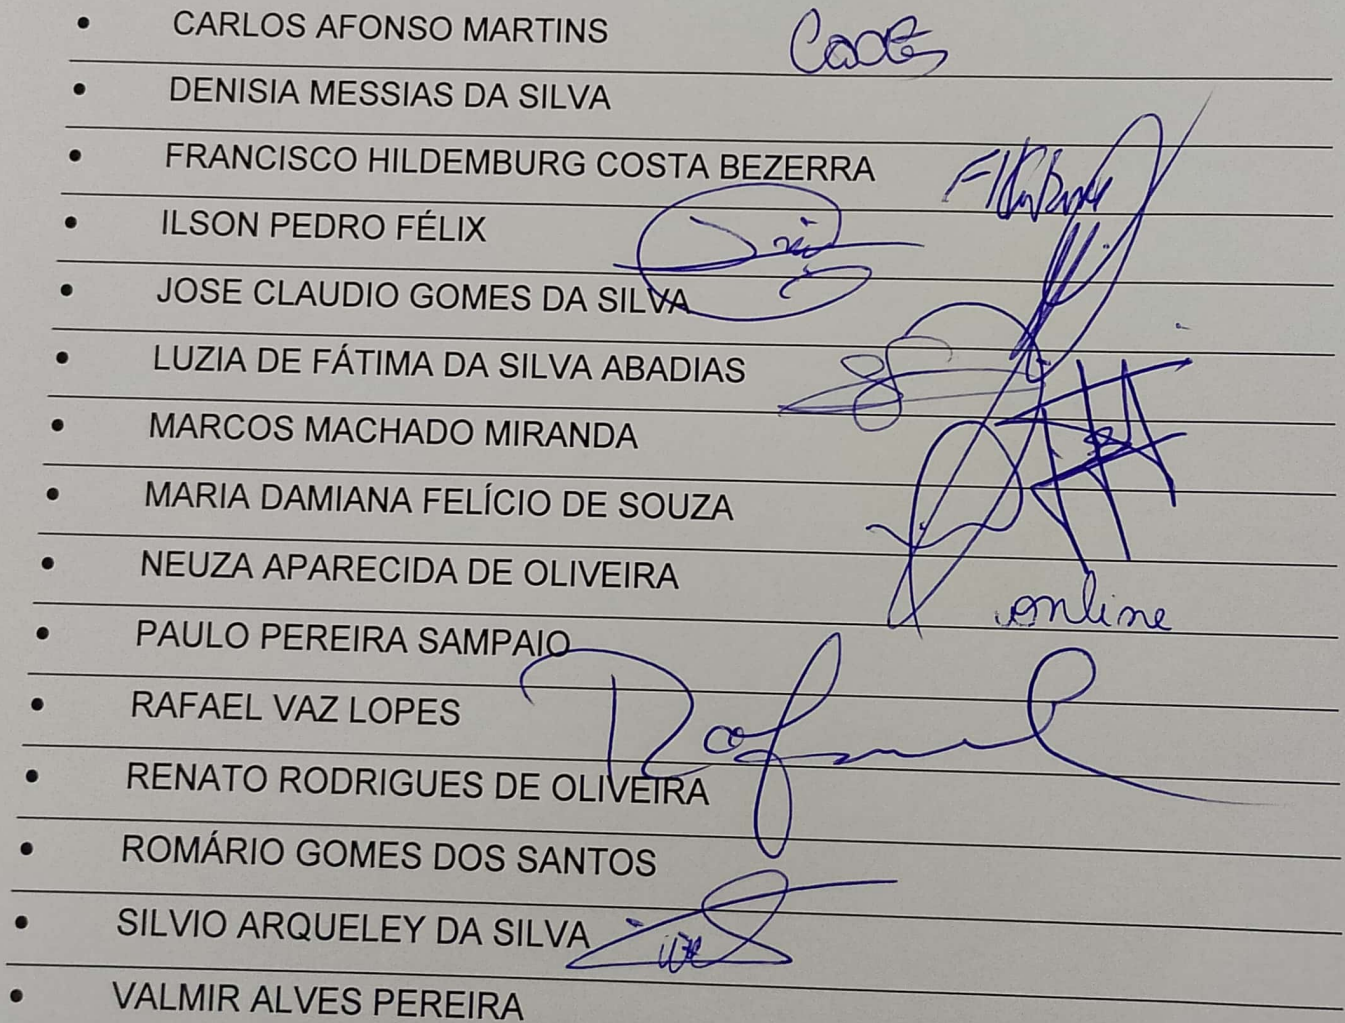 • CARLOS AFONSO MARTINS
• DENISIA MESSIAS DA SILVA
• FRANCISCO HILDEMBURG COSTA BEZERRA
• ILSON PEDRO FÉLIX
• JOSE CLAUDIO GOMES DA SILVA
• LUZIA DE FÁTIMA DA SILVA ABADIAS
• MARCOS MACHADO MIRANDA
• MARIA DAMIANA FELÍCIO DE SOUZA
• NEUZA APARECIDA DE OLIVEIRA online
• PAULO PEREIRA SAMPAIO
• RAFAEL VAZ LOPES Rafael
• RENATO RODRIGUES DE OLIVEIRA
• ROMÁRIO GOMES DOS SANTOS
• SILVIO ARQUELEY DA SILVA
• VALMIR ALVES PEREIRA